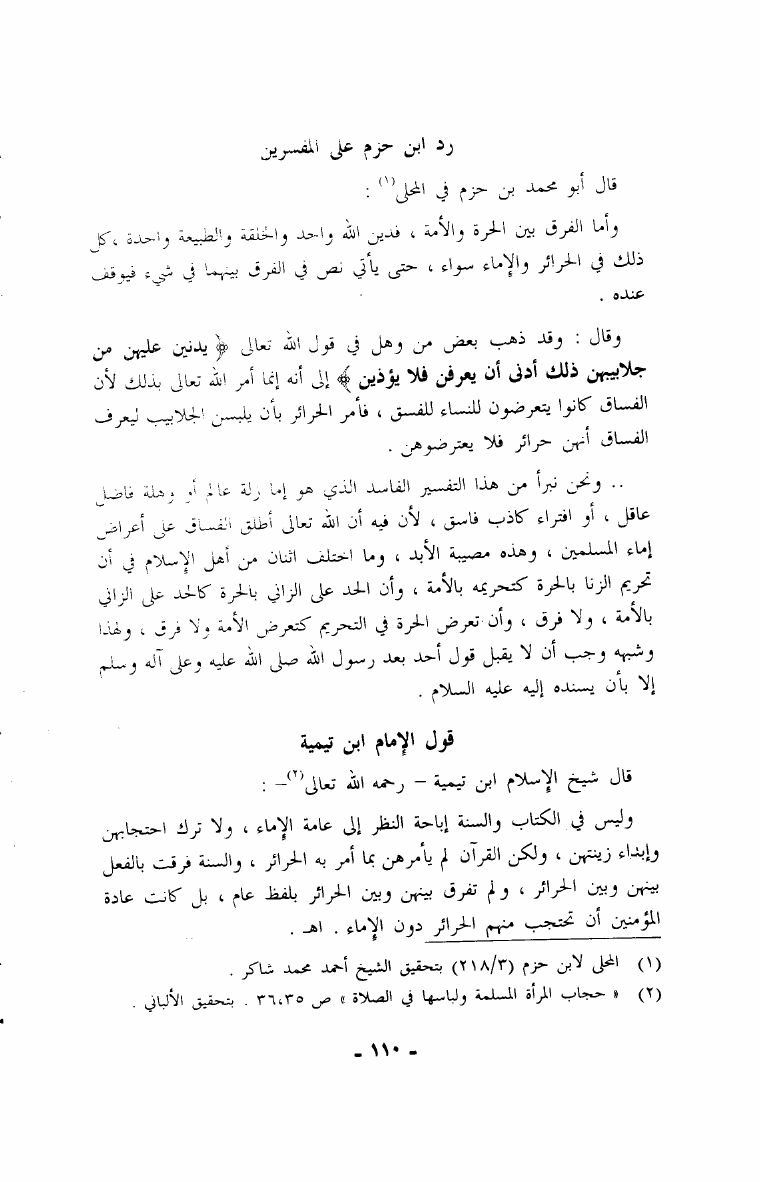 رد ابن حزم على المفسرين
قال أبو محمد بن حزم في المحلى(١) :
وأما الفرق بين الحرة والأمة ، فدين الله واحد والخلقة والطبيعة واحدة ، كل
ذلك في الحرائر والإماء سواء ، حتى يأتي نص في الفرق بينهما في شيء فيوقف
عنده .
وقال : وقد ذهب بعض من وهل في قول الله تعالى ﴿ يدنين عليهن من
جلابيبهن ذلك أدنى أن يعرفن فلا يؤذين ﴾ إلى أنه إنما أمر الله تعالى بذلك لأن
الفساق كانوا يتعرضون للنساء للفسق ، فأمر الحرائر بأن يلبسن الجلابيب ليعرف
الفساق أنهن حرائر فلا يعترضوهن .
.. ونحن نبرأ من هذا التفسير الفاسد الذي هو إما زلة عالم أو وهلة فاضل
عاقل ، أو افتراء كاذب فاسق ، لأن فيه أن الله تعالى أطلق الفساق على أعراض
إماء المسلمين ، وهذه مصيبة الأبد ، وما اختلف اثنان من أهل الإسلام في أن
تحريم الزنا بالحرة كتحريمه بالأمة ، وأن الحد على الزاني بالحرة كالحد على الزاني
بالأمة ، ولا فرق ، وأن تعرض الحرة في التحريم كتعرض الأمة ولا فرق ، ولهذا
وشبهه وجب أن لا يقبل قول أحد بعد رسول الله صلى الله عليه وعلى آله وسلم
إلا بأن يسنده إليه عليه السلام .
قول الإمام ابن تيمية
قال شيخ الإسلام ابن تيمية – رحمه الله تعالى(٢)– :
وليس في الكتاب والسنة إباحة النظر إلى عامة الإماء ، ولا ترك احتجابهن
وإبداء زينتهن ، ولكن القرآن لم يأمرهن بما أمر به الحرائر ، والسنة فرقت بالفعل
بينهن وبين الحرائر ، ولم تفرق بينهن وبين الحرائر بلفظ عام ، بل كانت عادة
المؤمنين أن تحتجب منهم الحرائر دون الإماء . اهـ .
(١) المحلى لابن حزم (٢١٨/٣) بتحقيق الشيخ أحمد محمد شاكر .
(٢) « حجاب المرأة المسلمة ولباسها في الصلاة » ص ٣٦،٣٥ . بتحقيق الألباني .
- ١١٠ -